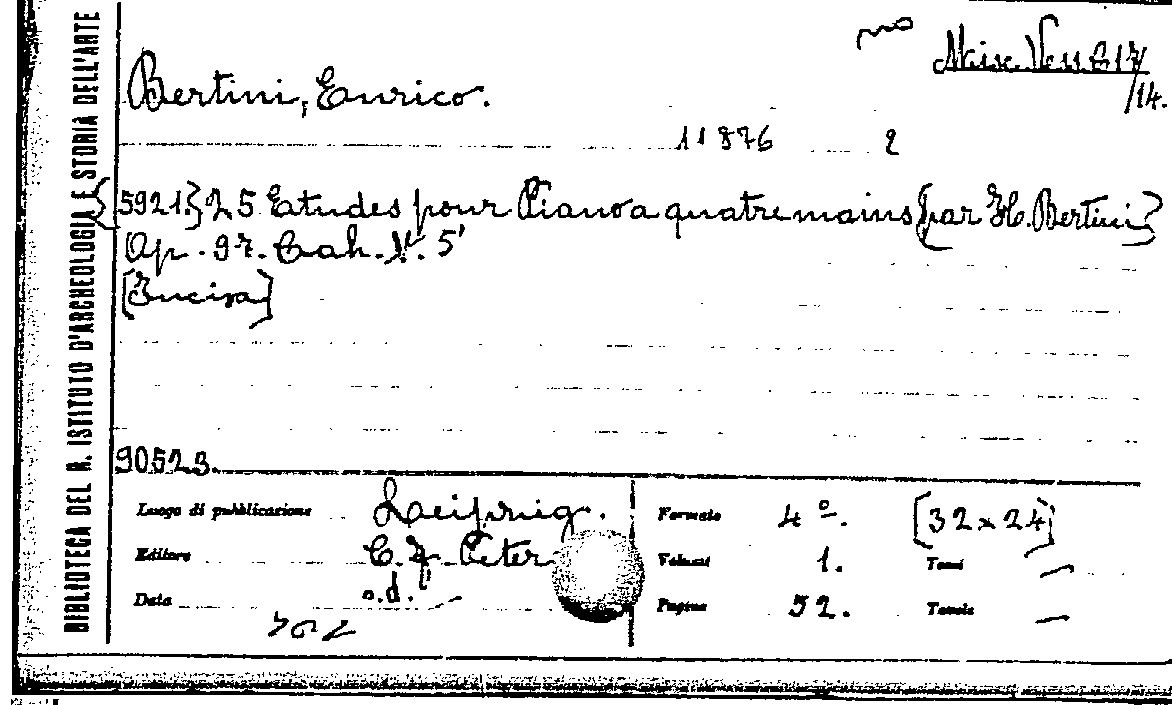 BIBLIOTECA DEL R. ISTITUTO D'ARCHEOLOGIA E STORIA DELL'ARTE
Misc. Vess. B 17/
/14.
Bertini, Enrico.
11876 2
[5921.] 25 Etudes pour Piano a quatre mains [par H. Bertini]
Op. 97. Cah. N. 5
[Incisa]
90523.
Luogo di pubblicazione Leipzig.
Editore C. F. Peter
Data s.d.
Formato 4º. [32 x 24]
Volumi 1. Tomi —
Pagine 52. Tavole —